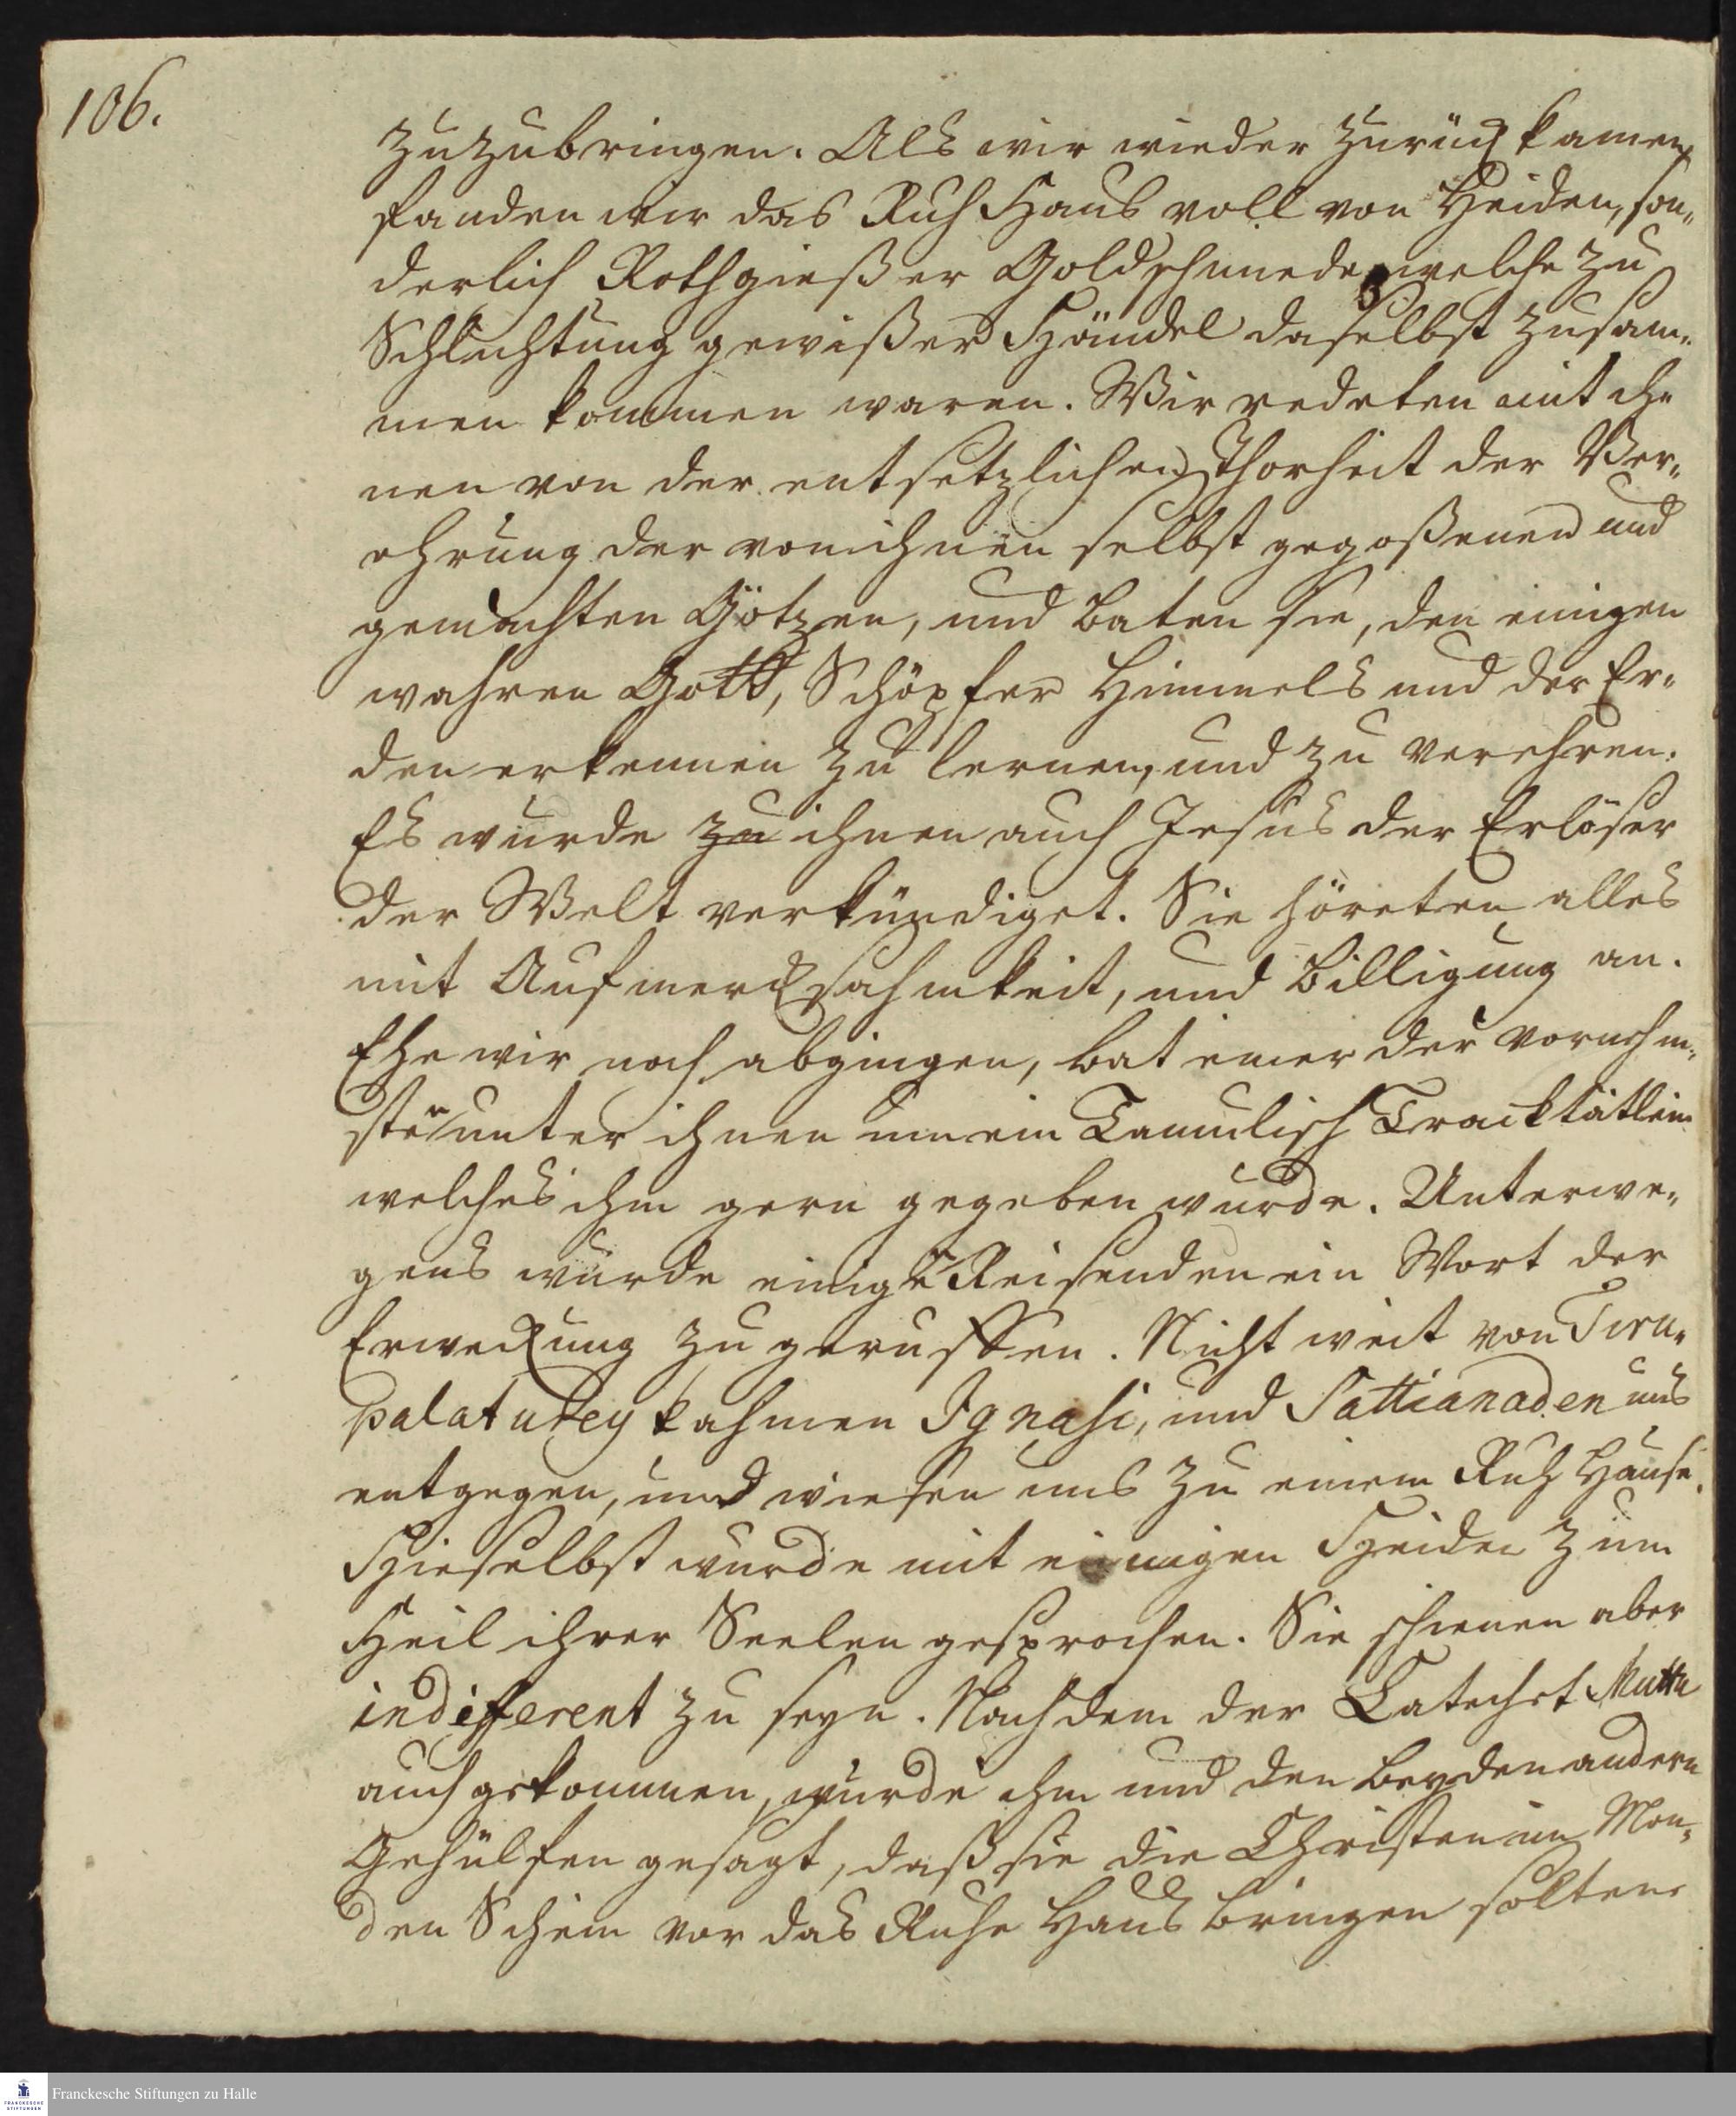 106.
zuzubringen. Als wir wieder zurück kamen,
fanden wir das Ruh Haus voll von Heiden, son„
derlich Rothgießer Goldschmiede, welche zu
Schlichtung gewißer Händel daselbst zusam„
men kommen waren. Wir redeten mit ih„
nen von der entsetzlichen Thorheit der Ver„
ehrung der von ihnen selbst gegoßenen und
gemachten Götzen, und baten sie, den einigen
wahren Gott, Schöpfer Himmels und der Er„
den erkennen zu lernen, und zu verehren.
Es wurde zu ihnen auch Jesus der Erlöser
der Welt verkündiget. Sie höreten alles
mit Aufmercksahmkeit, und Billigung an.
Ehe wir noch abgingen, bat einer der vornehm„
sten unter ihnen um ein Tamulisch Tracktätlein
welches ihm gern gegeben wurde. Unterwe„
gens wurde einigen Reisenden ein Wort der
Erweckung zu geruffen. Nicht weit von Tiru„
palaturey kahmen Ignasi, und Sattianaden uns
entgegen, und wiesen uns zu einem Ruh Hause.
Hieselbst wurde mit einigen Heiden zum
Heil ihrer Seelen gesprochen. Sie schienen aber
indifferent zu seyn. Nachdem der Catechet Muttu
auch gekommen, wurde ihm und den beyden andern
Gehülfen gesagt, daß sie die Christen im Mon„
den Schein vor das Ruhe Haus bringen solten
Franckesche Stiftungen zu Halle
FRANCKESCHE
STIFTUNGEN